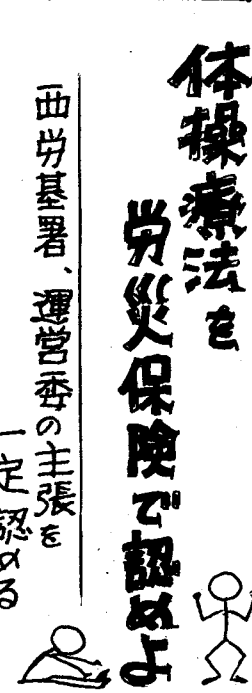 体操療法を
労災保険で認めよ
西労基署、運営委の主張を
一定認める